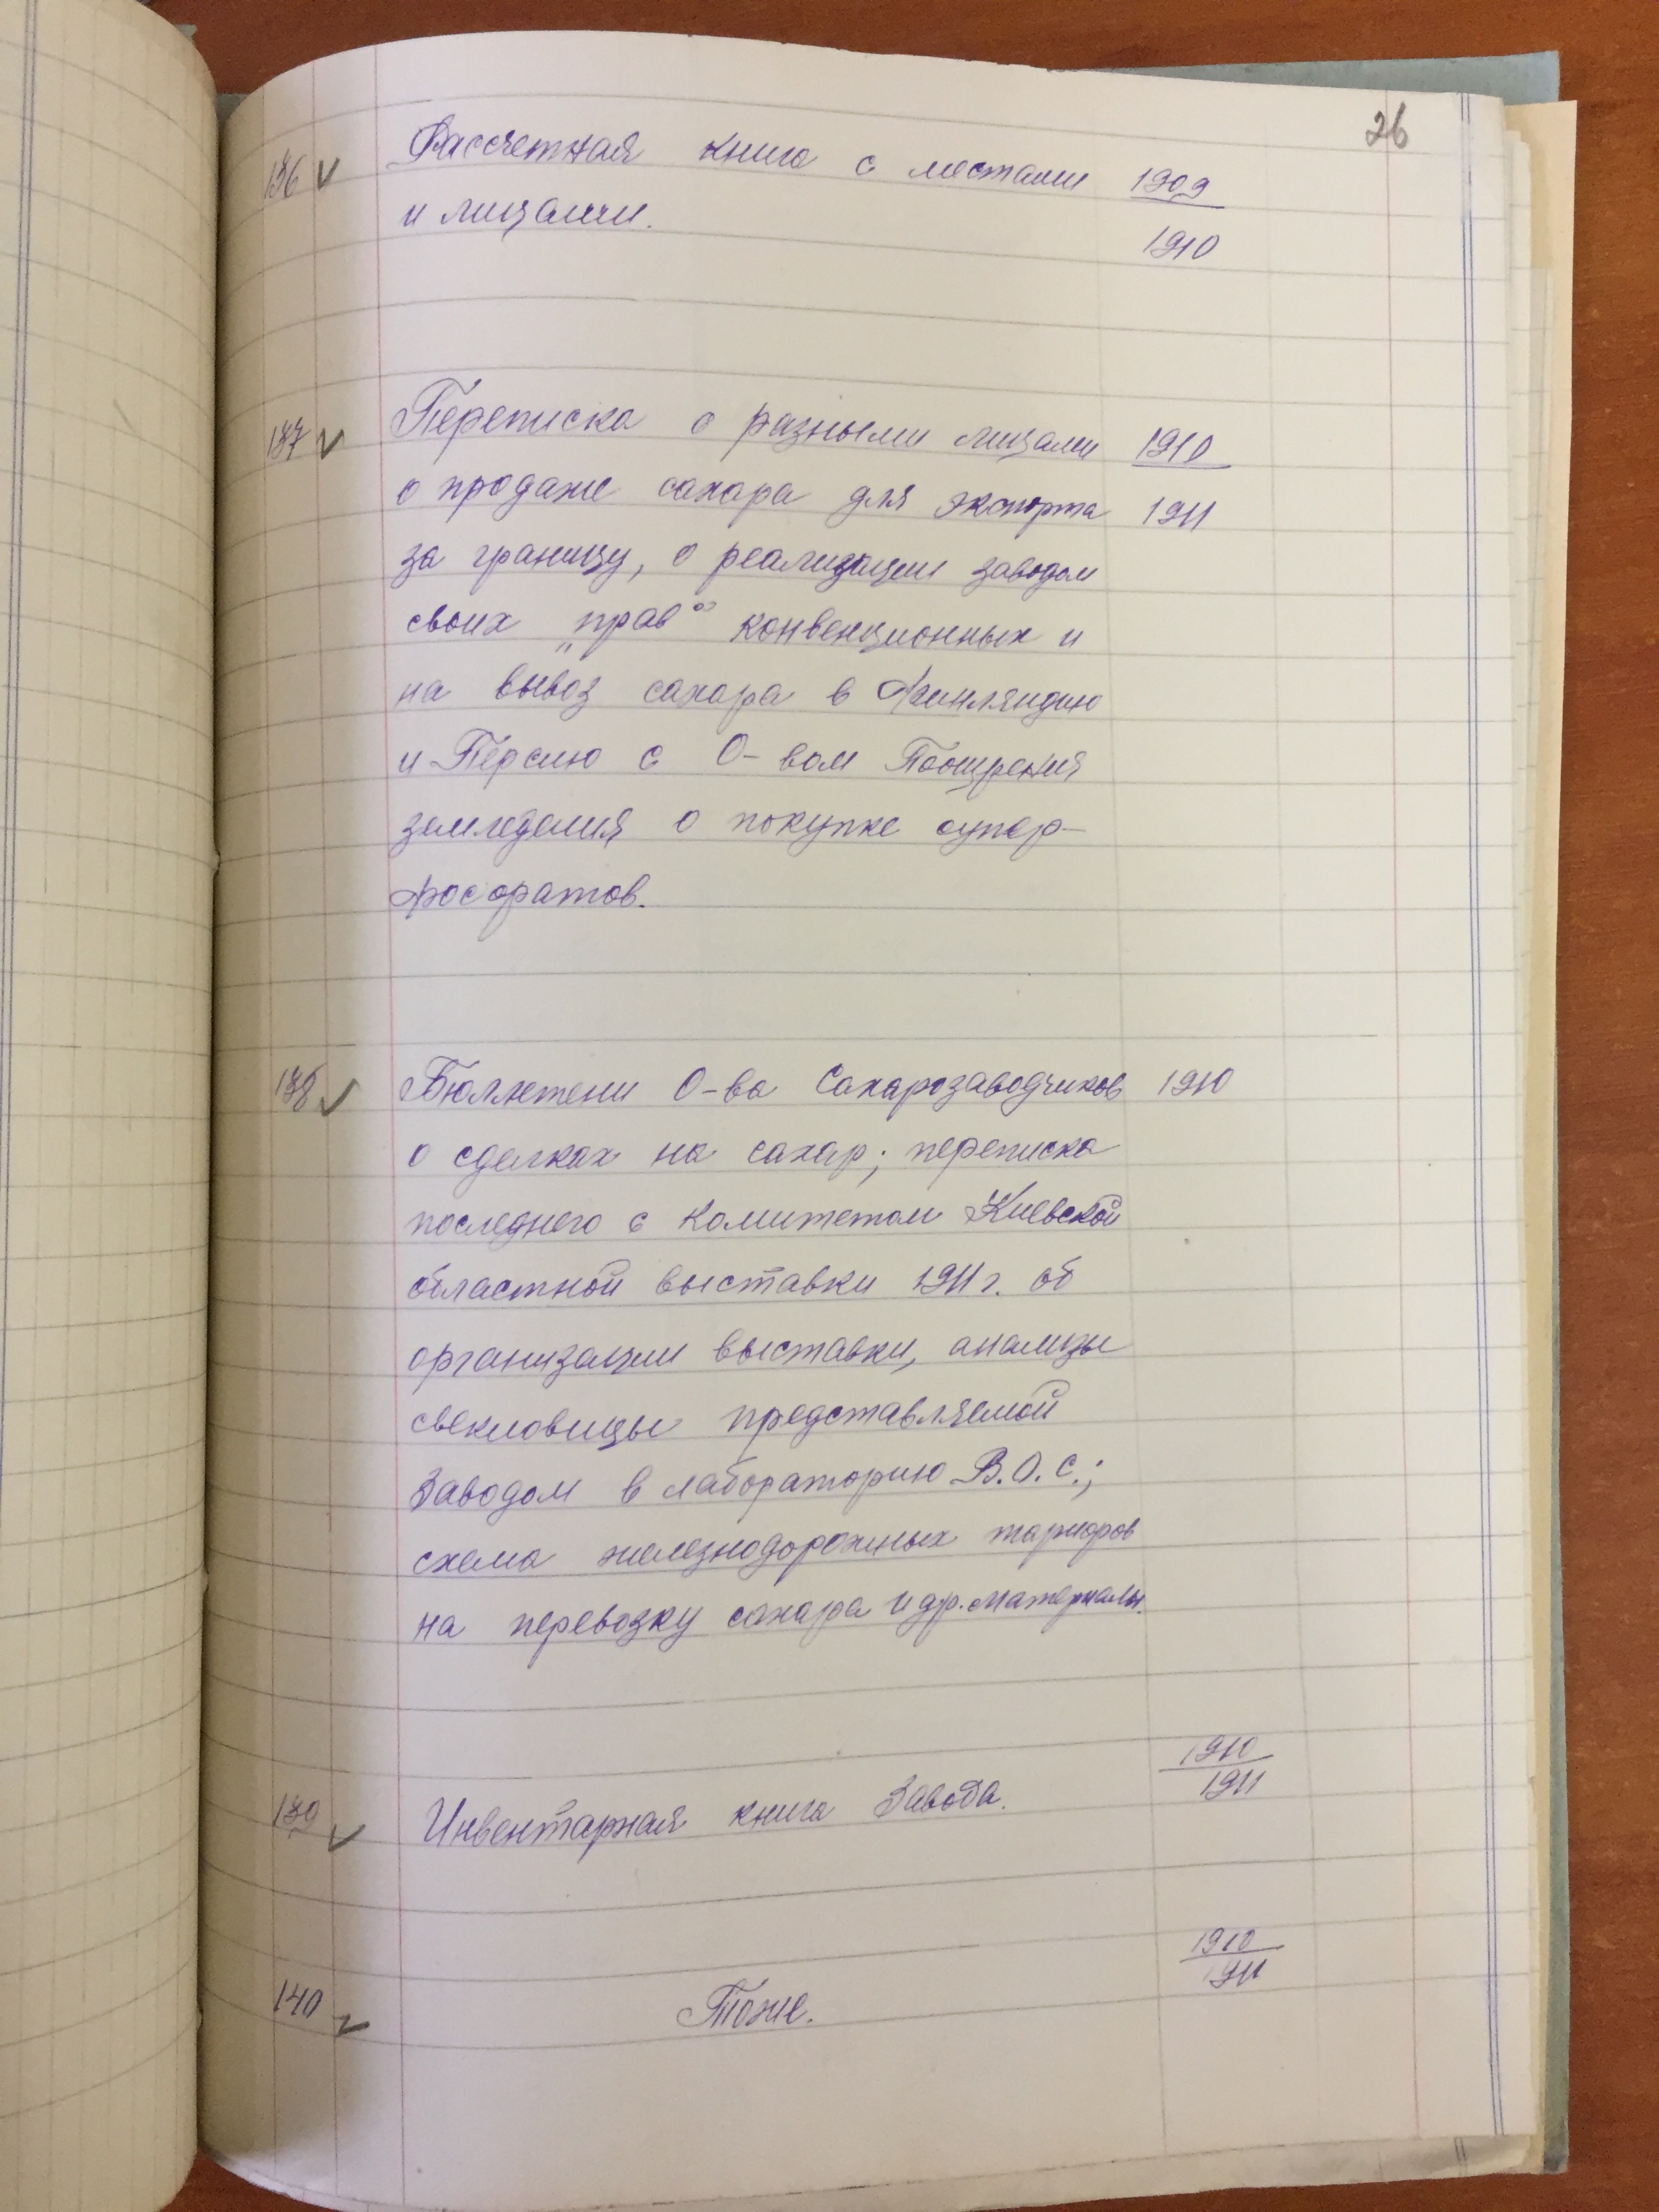 26
136 ✓ Рассчетная книга с местами 1909
и лицами. 1910
137 ✓ Переписка с разными лицами 1910
о продаже сахара для экспорта 1911
за границу, о реализации заводом
своих „прав" конвенционных и
на вывоз сахара в Финляндию
и Персию с О-вом Поощрения
земледелия о покупке супер-
фосфатов.
138 ✓ Бюллетени О-ва Сахарозаводчиков 1910
о сделках на сахар; переписка
последнего с Комитетом Киевской
областной выставки 1911 г. об
организации выставки, анализы
свекловицы представляемой
Заводом в лабораторию В.О.С.;
схема железнодорожных тарифов
на перевозку сахара и др. материалы.
1910
139 ✓ Инвентарная книга Завода. 1911
1910
140 ✓ Тоже. 1911